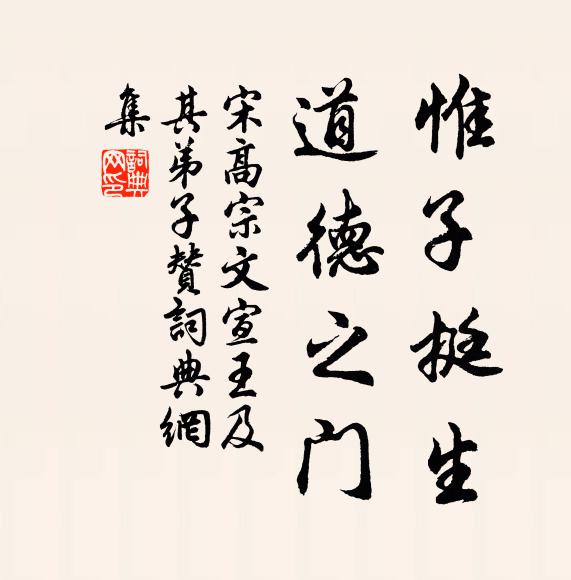 惟子挺生
道德之门
宋高宗文宣王及
其弟子赞詞典網
集
詞典网印